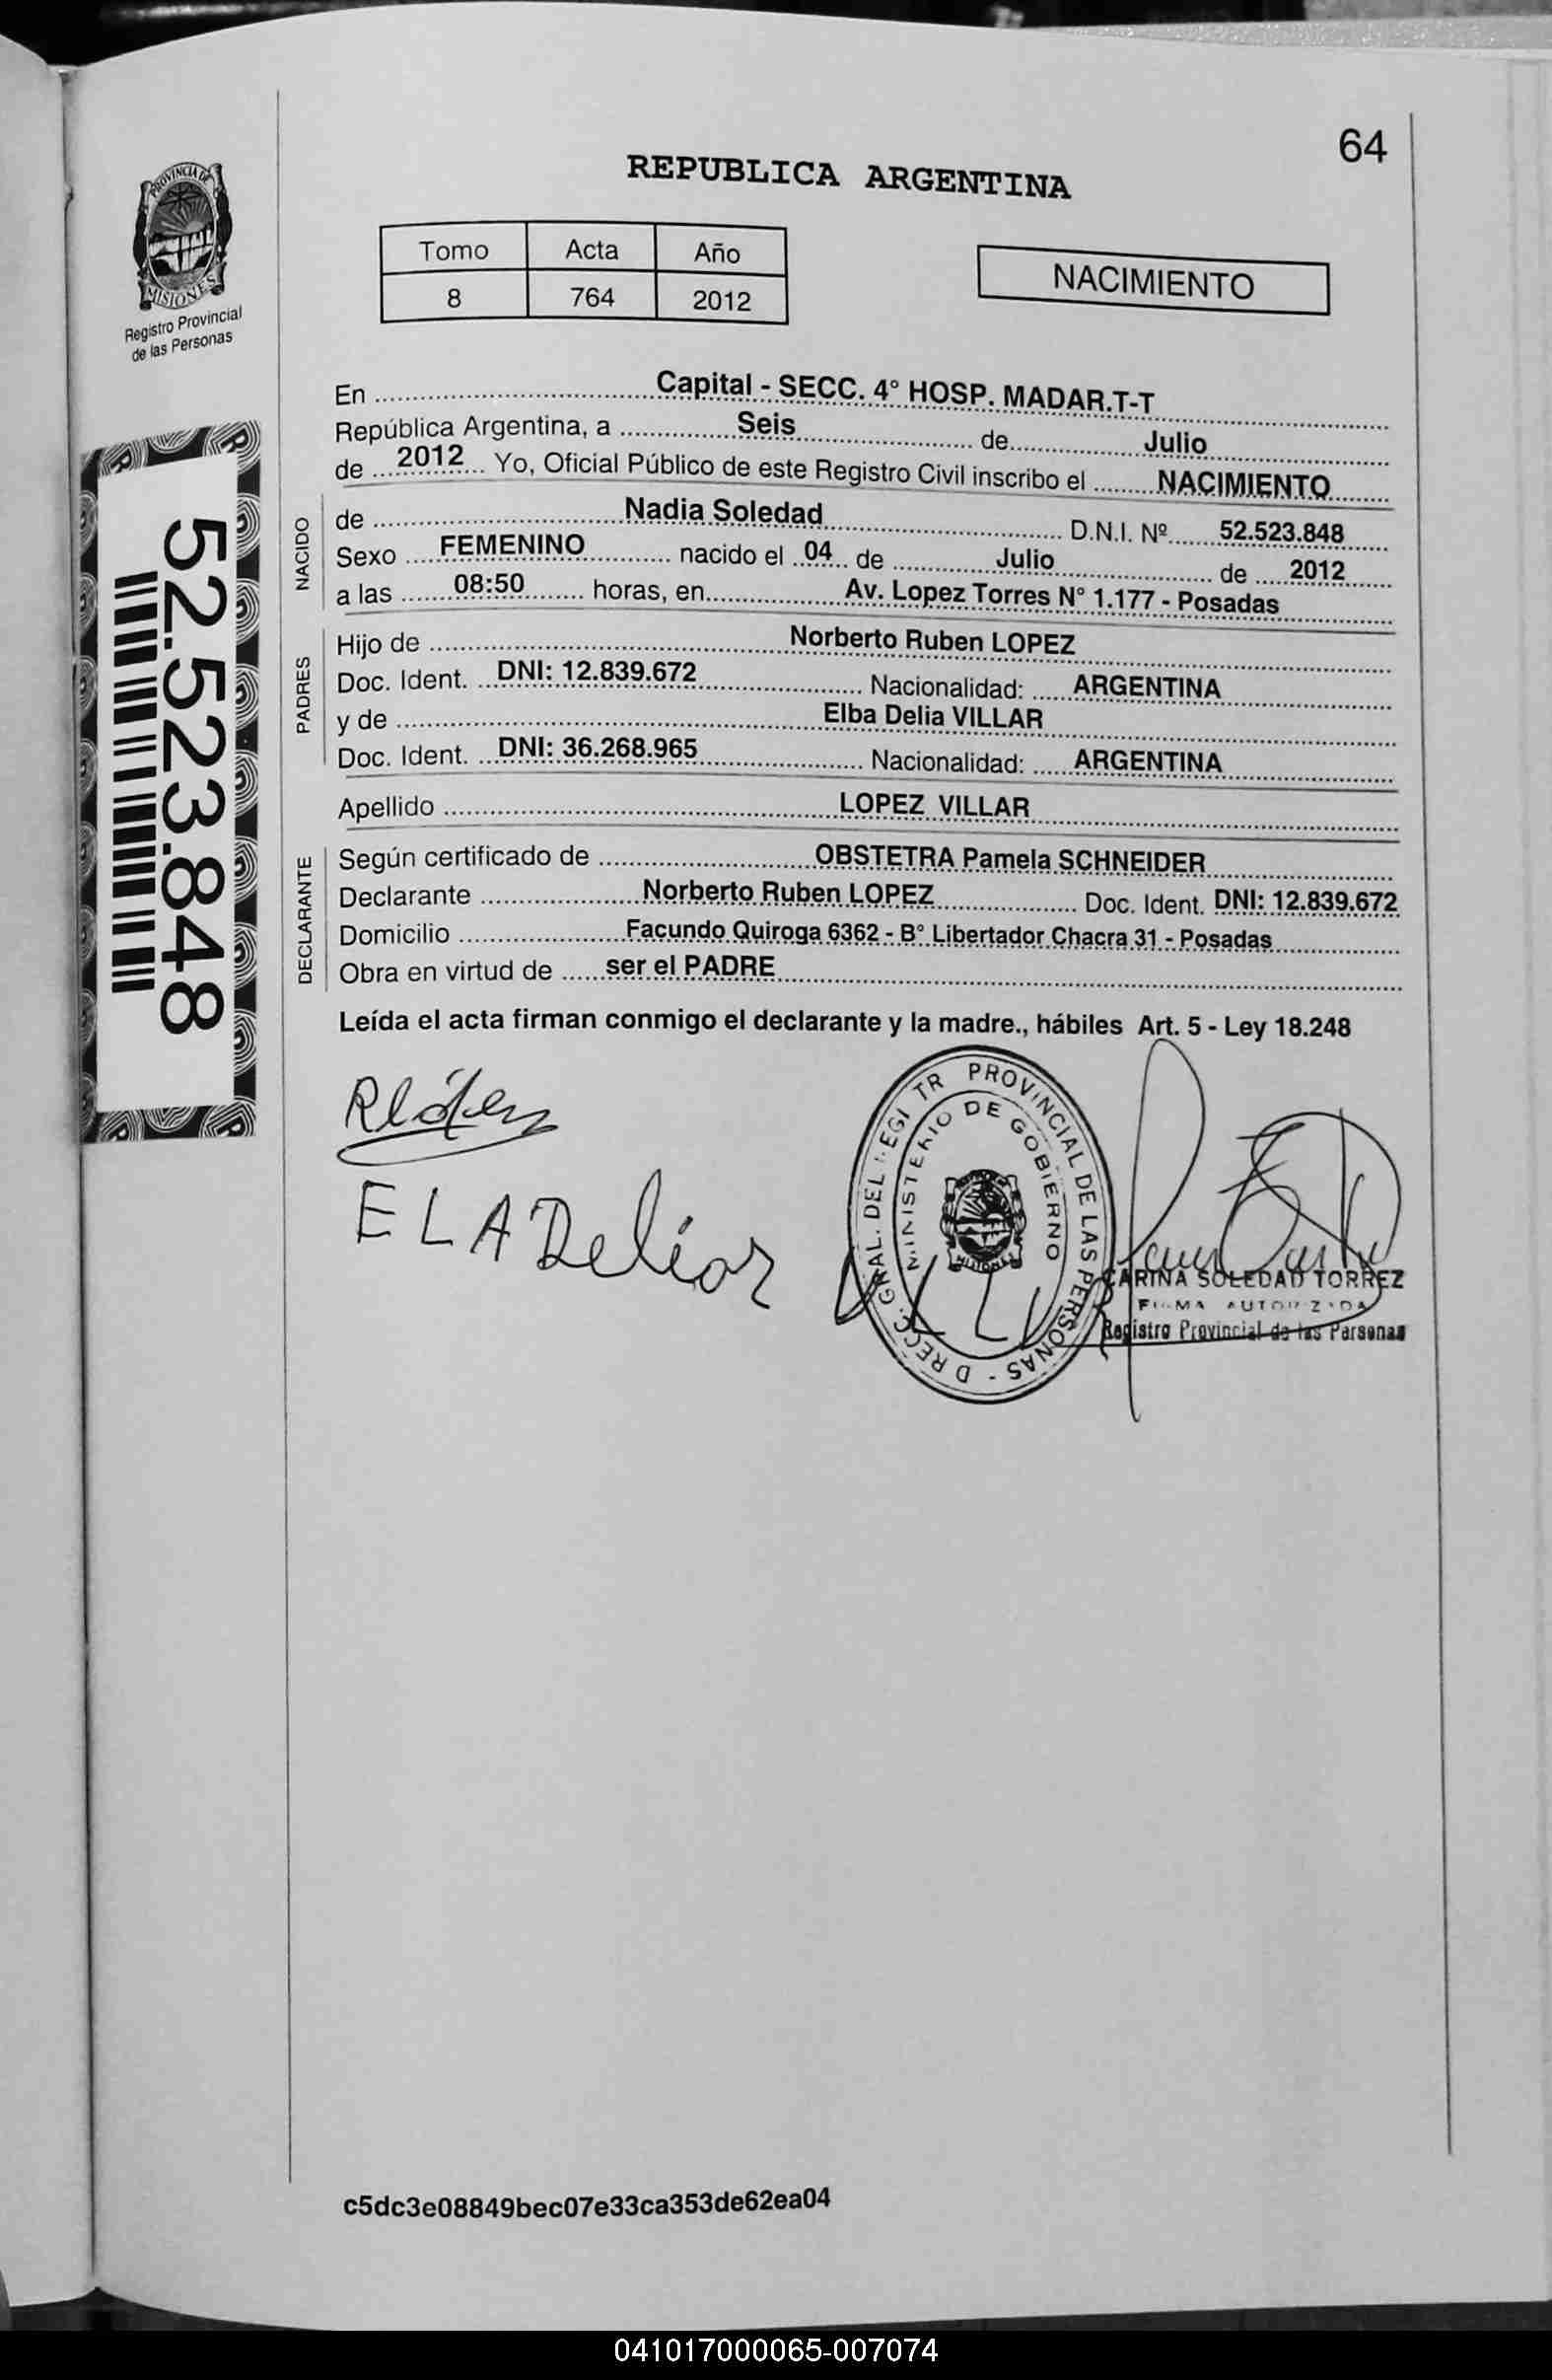 64
REPUBLICA ARGENTINA
PROVINCIA DE
MISIONES
Registro Provincial
de las Personas
Tomo Acta Año
8 764 2012
NACIMIENTO
En Capital - SECC. 4° HOSP. MADAR.T-T
República Argentina, a Seis de Julio
de 2012 Yo, Oficial Público de este Registro Civil inscribo el NACIMIENTO
NACIDO
de Nadia Soledad D.N.I. Nº 52.523.848
Sexo FEMENINO nacido el 04 de Julio de 2012
a las 08:50 horas, en Av. Lopez Torres N° 1.177 - Posadas
PADRES
Hijo de Norberto Ruben LOPEZ
Doc. Ident. DNI: 12.839.672 Nacionalidad: ARGENTINA
y de Elba Delia VILLAR
Doc. Ident. DNI: 36.268.965 Nacionalidad: ARGENTINA
Apellido LOPEZ VILLAR
DECLARANTE
Según certificado de OBSTETRA Pamela SCHNEIDER
Declarante Norberto Ruben LOPEZ Doc. Ident. DNI: 12.839.672
Domicilio Facundo Quiroga 6362 - B° Libertador Chacra 31 - Posadas
Obra en virtud de ser el PADRE
52.523.848
Leída el acta firman conmigo el declarante y la madre., hábiles Art. 5 - Ley 18.248
PROVINCIAL DE LAS PERSONAS
MINISTERIO DE GOBIERNO
MISIONES
CARINA SOLEDAD TORREZ
FIRMA AUTORIZADA
Registro Provincial de las Personas
c5dc3e08849bec07e33ca353de62ea04
041017000065-007074